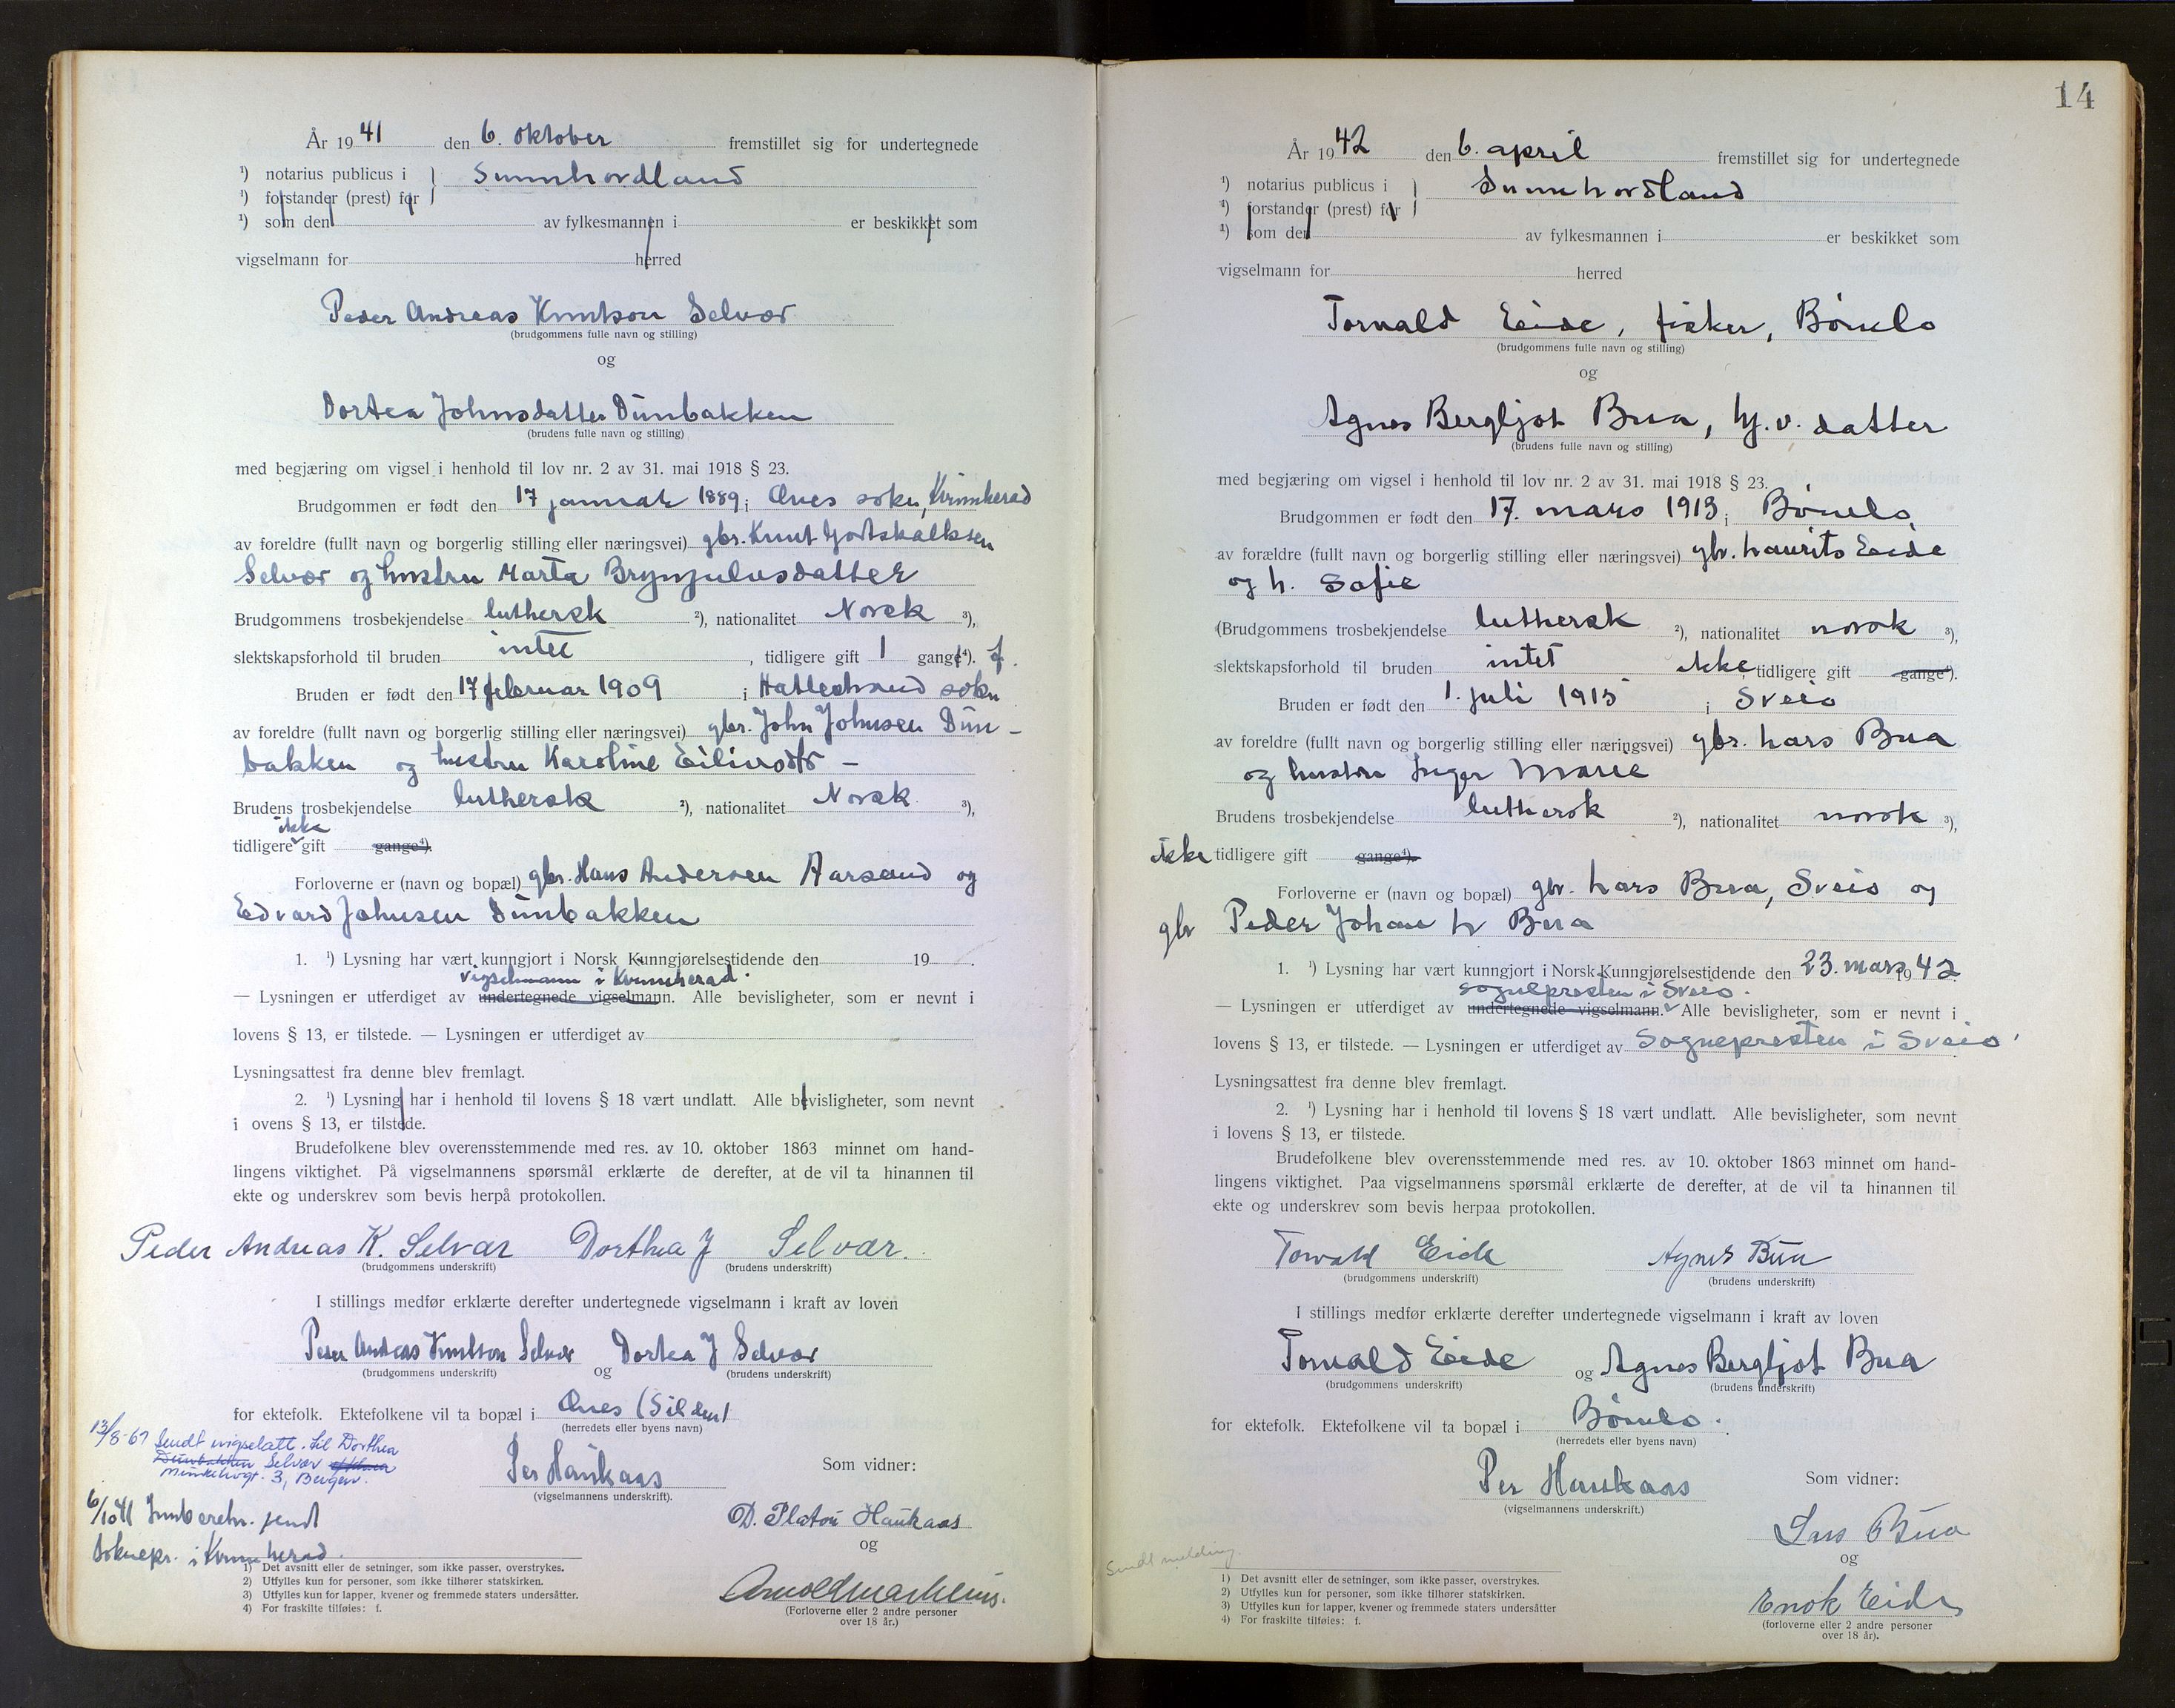 År 1941 den 6. oktober fremstillet sig for undertegnede
¹) notarius publicus i } Sunnhordland
¹) forstander (prest) for
¹) som den av fylkesmannen i er beskikket som
vigselmann for herred
Peder Andreas Knutson Selvær
(brudgommens fulle navn og stilling)
og
Dortea Johnsdatter Dunbakken
(brudens fulle navn og stilling)
med begjæring om vigsel i henhold til lov nr. 2 av 31. mai 1918 § 23.
Brudgommen er født den 17 januar 1889 i Ænes sokn, Kvinnherad
av foreldre (fullt navn og borgerlig stilling eller næringsvei) gbr. Knut Gottskalksen
Selvær og hustru Marta Brynjulvsdatter
Brudgommens trosbekjendelse luthersk ²), nationalitet Norsk ³),
slektskapsforhold til bruden intet , tidligere gift 1 gang⁴). f.
Bruden er født den 17 februar 1909 i Hatlestrand sokn
av foreldre (fullt navn og borgerlig stilling eller næringsvei) gbr. John Johnsen Dun-
bakken og hustru Karoline Eilivsdtr –
Brudens trosbekjendelse luthersk ²), nationalitet Norsk ³),
ikke
tidligere gift gange⁴).
Forloverne er (navn og bopæl) gbr. Hans Andersen Aarsand og
Edvard Johnsen Dunbakken
1. ¹) Lysning har vært kunngjort i Norsk Kunngjørelsestidende den 19 .
vigselmann i Kvinnherad.
— Lysningen er utferdiget av undertegnede vigselmann. Alle bevisligheter, som er nevnt i
lovens § 13, er tilstede. — Lysningen er utferdiget av
Lysningsattest fra denne blev fremlagt.
2. ¹) Lysning har i henhold til lovens § 18 vært undlatt. Alle bevisligheter, som nevnt
i ovens § 13, er tilstede.
Brudefolkene blev overensstemmende med res. av 10. oktober 1863 minnet om hand-
lingens viktighet. På vigselmannens spørsmål erklærte de derefter, at de vil ta hinannen til
ekte og underskrev som bevis herpå protokollen.
Peder Andreas K. Selvær Dorthea J Selvær.
(brudgommens underskrift) (brudens underskrift)
I stillings medfør erklærte derefter undertegnede vigselmann i kraft av loven
Peder Andreas Knutson Selvær og Dortea J Selvær
(brudgommens underskrift) (brudens underskrift)
for ektefolk. Ektefolkene vil ta bopæl i Ænes (Silden)
(herredets eller byens navn)
13/8-67 Sendt vigselatt. til Dorthea
Dunbakken Selvær
3, Bergen.
Per Haukaas
(vigselmannens underskrift).
Som vidner:
6/10 41 Innberetn. sendt
soknepr. i Kvinnherad.
D. Platou Haukaas
og
(Forloverne eller 2 andre personer
over 18 år.)
1) Det avsnitt eller de setninger, som ikke passer, overstrykes.
2) Utfylles kun for personer, som ikke tilhører statskirken.
3) Utfylles kun for lapper, kvener og fremmede staters undersåtter.
4) For fraskilte tilføies: f.
14
År 1942 den 6. april fremstillet sig for undertegnede
¹) notarius publicus i } Sunnhordland
¹) forstander (prest) for
¹) som den av fylkesmannen i er beskikket som
vigselmann for herred
Torvald Eide, fisker, Bømlo
(brudgommens fulle navn og stilling)
og
Agnes Bergljot Bua, hj.v. datter
(brudens fulle navn og stilling)
med begjæring om vigsel i henhold til lov nr. 2 av 31. mai 1918 § 23.
Brudgommen er født den 17. mars 1913 i Bømlo
av forældre (fullt navn og borgerlig stilling eller næringsvei) gbr. Laurits Eide
og h. Sofie
(Brudgommens trosbekjendelse luthersk ²), nationalitet norsk ³),
slektskapsforhold til bruden intet ikke tidligere gift gange⁴).
Bruden er født den 1. juli 1915 i Sveio
av foreldre (fullt navn og borgerlig stilling eller næringsvei) gbr. Lars Bua
og hustru Inger Marie
Brudens trosbekjendelse luthersk ²), nationalitet norsk ³),
ikke tidligere gift gange⁴).
Forloverne er (navn og bopæl) gbr. Lars Bua, Sveio og
gbr Peder Johan L Bua
1. ¹) Lysning har vært kunngjort i Norsk Kunngjørelsestidende den 23. mars 1942
sogneprosten i Sveio.
— Lysningen er utferdiget av undertegnede vigselmann. Alle bevisligheter, som er nevnt i
lovens § 13, er tilstede. — Lysningen er utferdiget av Sognepresten i Sveio
Lysningsattest fra denne blev fremlagt.
2. ¹) Lysning har i henhold til lovens § 18 vært undlatt. Alle bevisligheter, som nevnt
i lovens § 13, er tilstede.
Brudefolkene blev overensstemmende med res. av 10. oktober 1863 minnet om hand-
lingens viktighet. Paa vigselmannens spørsmål erklærte de derefter, at de vil ta hinannen til
ekte og underskrev som bevis herpaa protokollen.
Torvald Eide Agnes Bua
(brudgommens underskrift) (brudens underskrift)
I stillings medfør erklærte derefter undertegnede vigselmann i kraft av loven
Torvald Eide og Agnes Bergljot Bua
(brudgommens underskrift) (brudens underskrift)
for ektefolk. Ektefolkene vil ta bopæl i Bømlo.
(herredets eller byens navn)
Per Haukaas
(vigselmannens underskrift.)
Som vidner:
Lars Bua
og
Enok Eide
(forloverne eller 2 andre personer
over 18 år).
Sendt melding.
1) Det avsnitt eller de setninger, som ikke passer, overstrykes.
2) Utfylles kun for personer, som ikke tilhører statskirken.
3) Utfylles kun for lapper, kvener og fremmede staters undersåtter
4) For fraskilte tilføies: f.